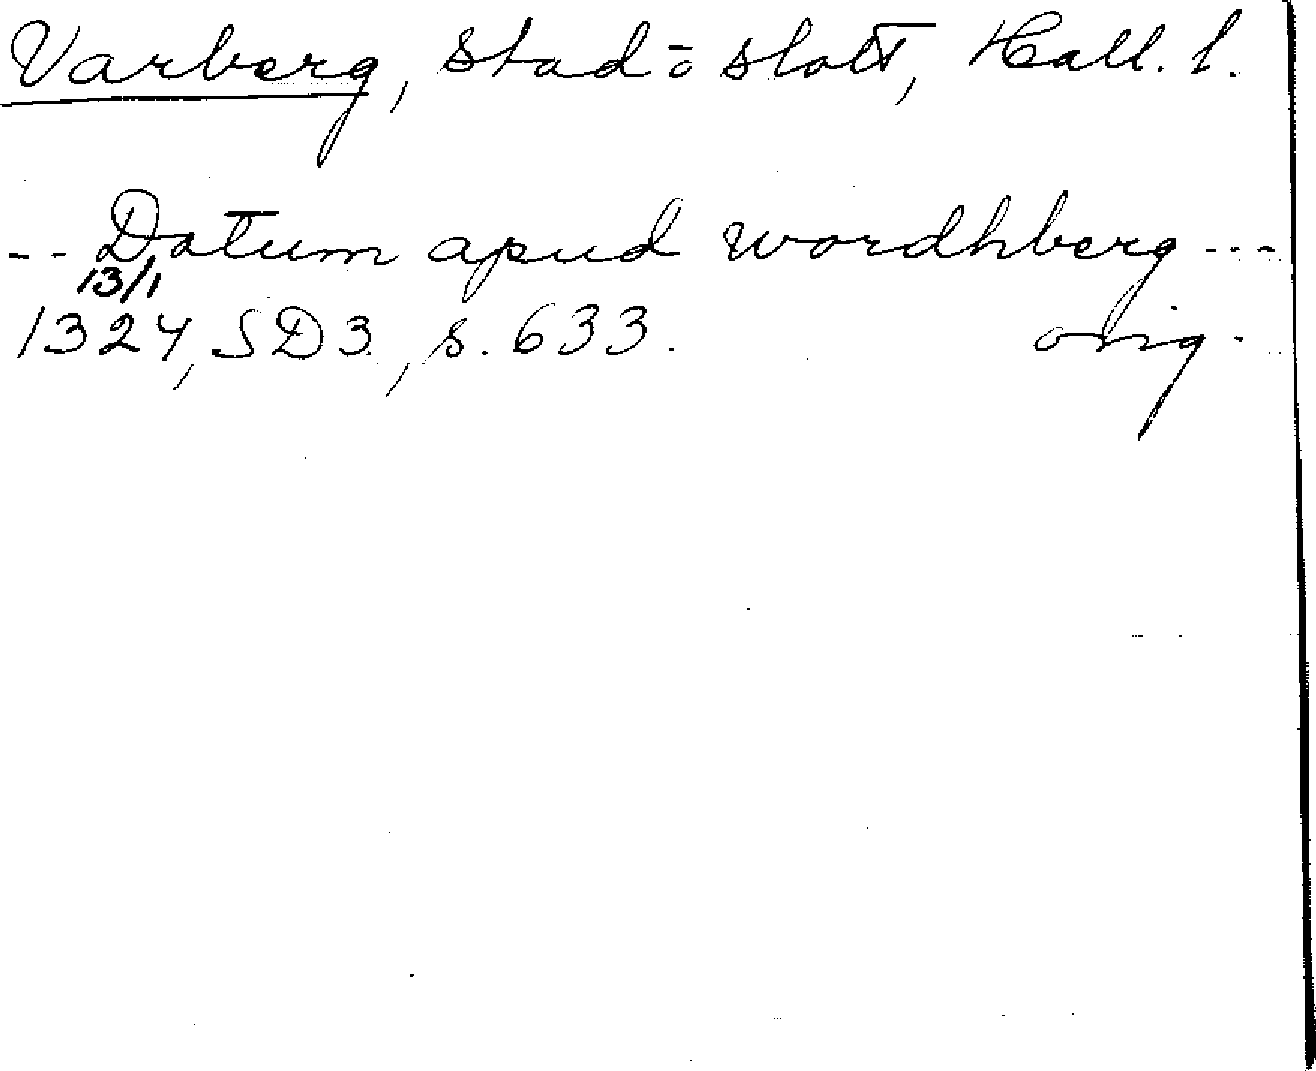 Varberg, stad o slott, Hall. l.
-- Datum apud wardhberg ---
13/1
1324, SD3, s. 633. orig.